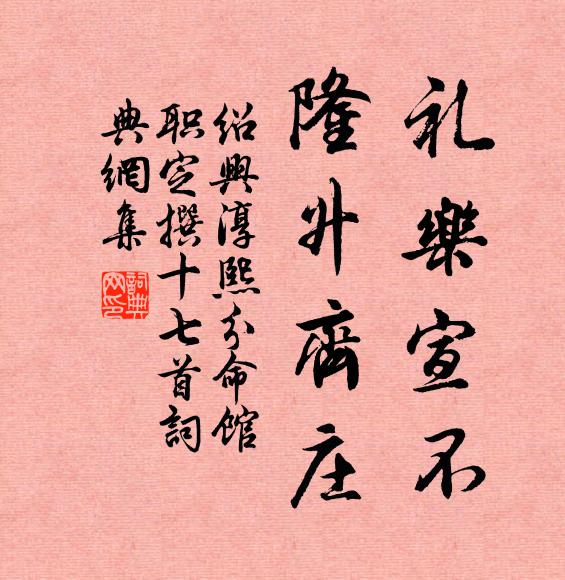 礼樂宣不
隆升齊庄
紹興淳熙分命馆
职定撰十七首詞
典網集
詞典网印